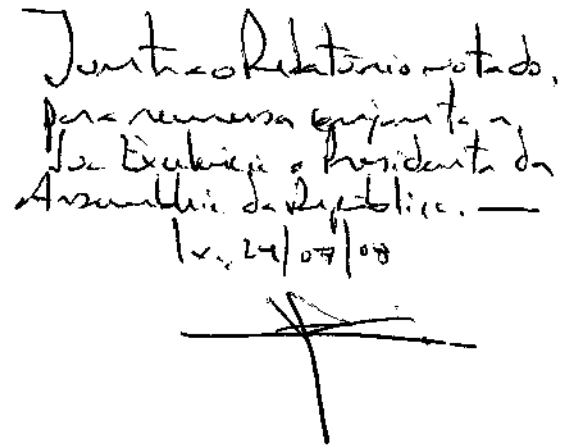 Junte-se ao Relatório votado,
para remessa conjunta a
Sua Excelência o Presidente da
Assembleia da República. —
Lx., 24/07/08